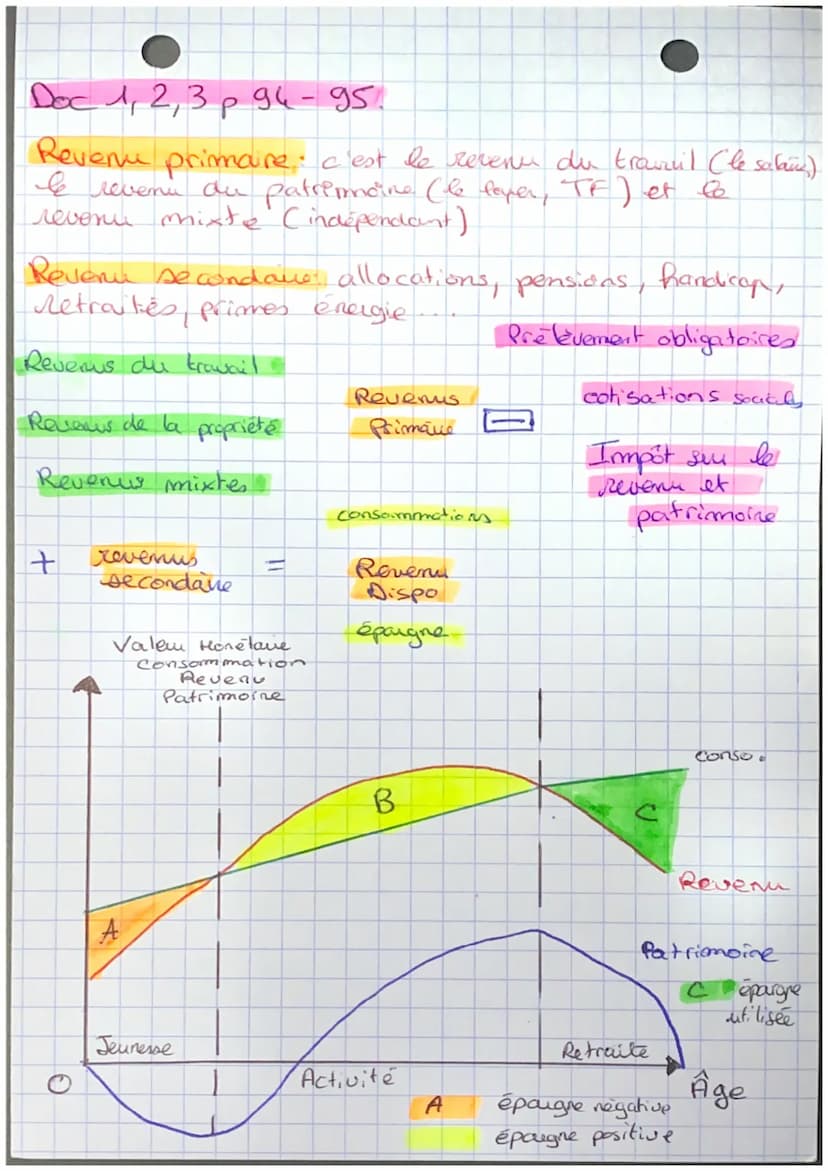 Doc 1, 2, 3 p 94 - 95.
Revenu primaire : c'est le revenu du travail (le salaire)
le revenu du patrimoine (le loyer, TF) et le
revenu mixte (indépendant)
Revenu secondaire : allocations, pensions, handicap,
retraités, primes énergie ...
Prélèvement obligatoires
Revenus du travail
Revenus
Primaire
cotisations sociales
Revenus de la propriété
Impôt sur le
revenu et
patrimoine
Revenus mixtes
consommations
+ revenus
secondaire
=
Revenu
Dispo
épargne
Valeur Monétaire
Consommation
Revenu
Patrimoine
conso.
B
C
A
Revenu
Patrimoine
C épargne
utilisée
Jeunesse
Retraite
O
Activité
Âge
A épargne négative
épargne positive